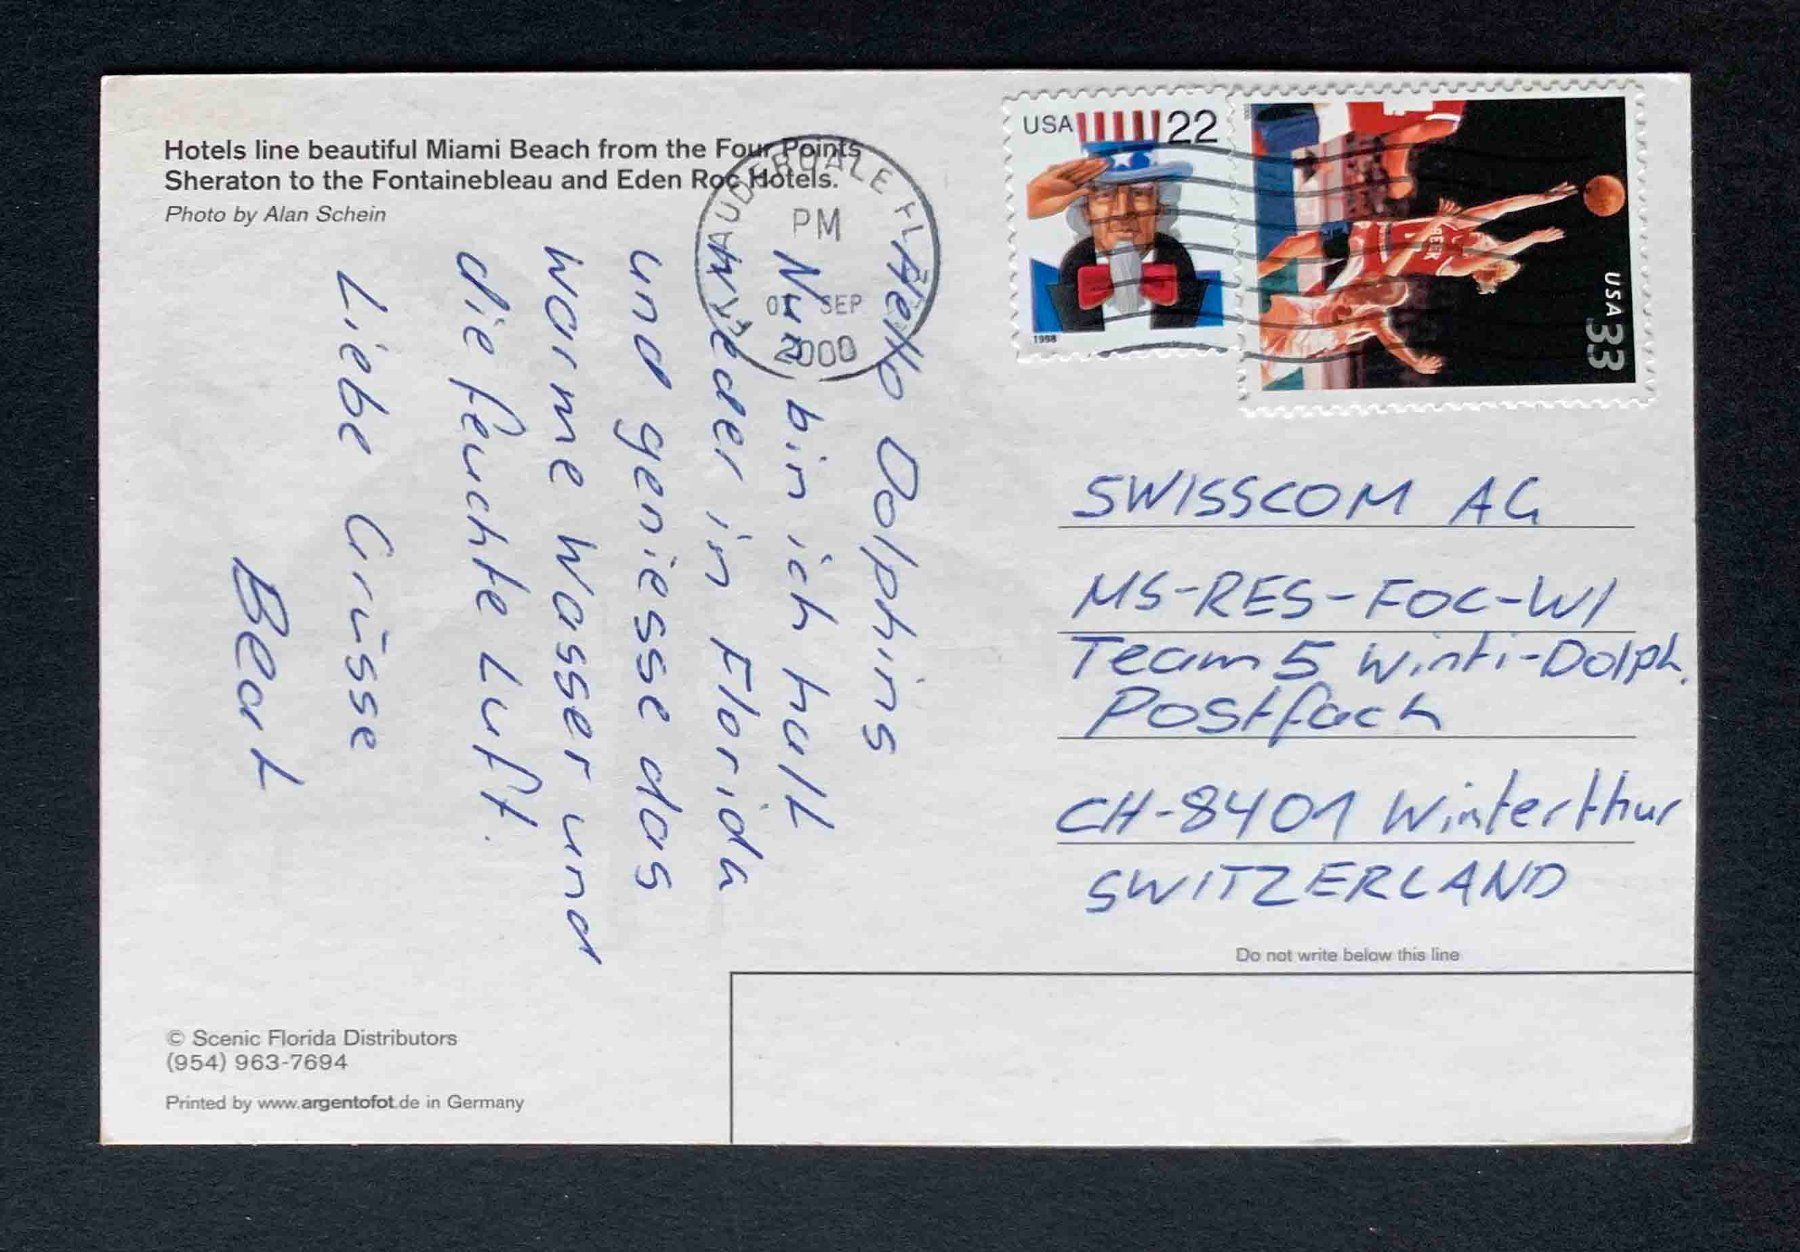 Hotels line beautiful Miami Beach from the Four Points
Sheraton to the Fontainebleau and Eden Roc Hotels.
Photo by Alan Schein
LAUDERDALE FL
PM
SEP
2000
USA 22
1998
USA 33
Hello Dolphins
Nun bin ich halt
wieder in Florida
und geniesse das
warme Wasser und
die feuchte Luft.
Liebe Grüsse
Beat
SWISSCOM AG
MS-RES-FOC-WI
Team 5 Winti-Dolph.
Postfach
CH-8401 Winterthur
SWITZERLAND
Do not write below this line
© Scenic Florida Distributors
(954) 963-7694
Printed by www.argentofot.de in Germany